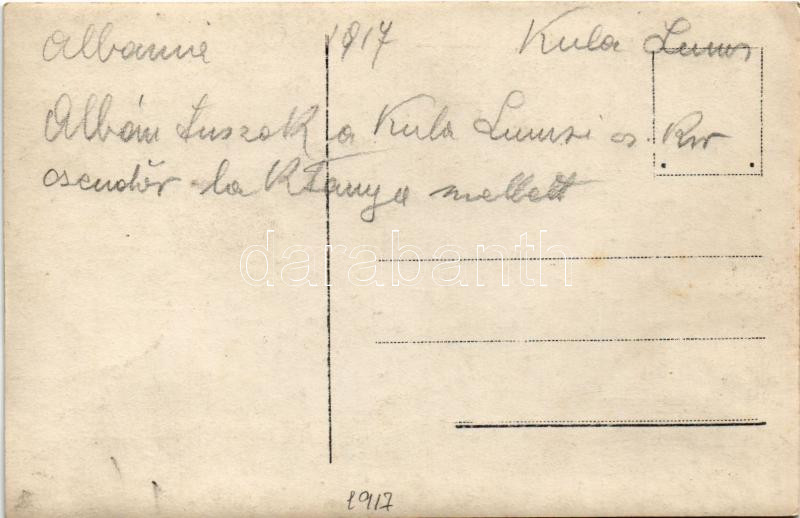 Albanie 1917 Kula Lums
Albán tuszok a Kula Lumsi cs. kir
csendőr laktanya mellett
darabanth
1917